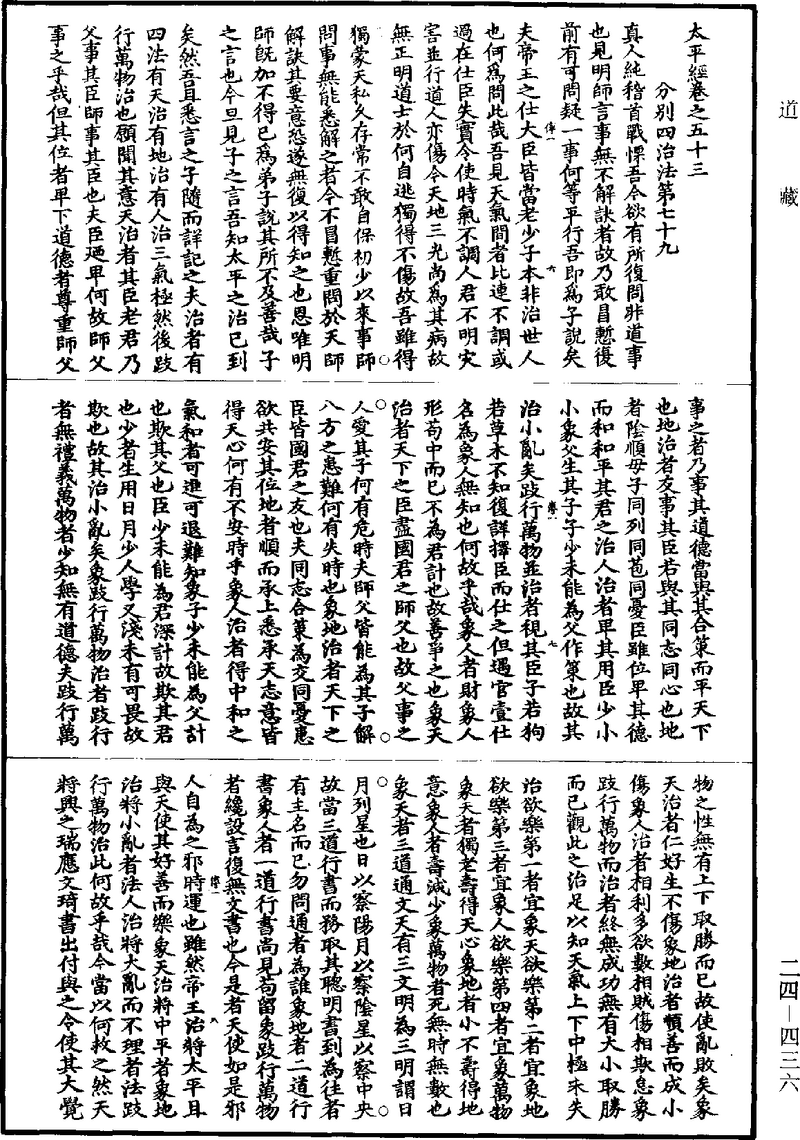 道藏
太平經卷之五十三
分別四治法第七十九
真人純稽首戰慄吾今欲有所復問非道事
也見明師言事無不解訣者故乃敢冒慙復
前有可問疑一事何等平行吾即為子說矣
夫帝王之仕大臣皆當老少子本非治世人
也何為問此哉吾見天氣間者比連不調或
過在仕臣失實令使時氣不調人君不明災
害並行道人亦傷今天地三光尚為其病故
無正明道士於何自逃獨得不傷故吾雖得
獨蒙天私久存常不敢自保初少以來事師
問事無能悉解之者今不冒慙重問於天師
解訣其要意恐遂無復以得知之也恩唯明
師既加不得已為弟子說其所不及善哉子
之言也今旦見子之言吾知太平之治已到
矣然吾且悉言之子隨而詳記之夫治者有
四法有天治有地治有人治三氣極然後跂
行萬物治也願聞其意天治者其臣老君乃
父事其臣師事其臣也夫臣廼卑何故師父
事之乎哉但其位者卑下道德者尊重師父
事之者乃事其道德當與其合策而平天下
也地治者友事其臣若與其同志同心也地
者陰順母子同列同苞同憂臣雖位卑其德
而和和平其君之治人治者卑其用臣少小
小象父生其子子少未能為父作策也故其
治小亂矣跂行萬物並治者視其臣子若狗
若草木不知復詳擇臣而仕之但遇官壹仕
名為象人無知也何故乎哉象人者財象人
形苟中而已不為君計也故善爭之也象天
治者天下之臣盡國君之師父也故父事之
人愛其子何有危時夫師父皆能為其子解
八方之患難何有失時也象地治者天下之
臣皆國君之友也夫同志合策為交同憂患
欲共安其位地者順而承上悉承天志意皆
得天心何有不安時乎象人治者得中和之
氣和者可進可退難知象子少未能為父計
也欺其父也臣少未能為君深計故欺其君
也少者生用日月少人學又淺未有可畏故
欺也故其治小亂矣象跂行萬物治者跂行
者無禮義萬物者少知無有道德夫跂行萬
物之性無有上下取勝而已故使亂敗矣象
天治者仁好生不傷象地治者順善而成小
傷象人治者相利多欲數相賊傷相欺怠象
跂行萬物而治者終無成功無有大小取勝
而已觀此之治足以知天氣上下中極未失
治欲樂第一者宜象天欲樂第二者宜象地
欲樂第三者宜象人欲樂第四者宜象萬物
象天者獨老壽得天心象地者小不壽得地
意象人者壽減少象萬物者死無時無數也
象天者三道通文天有三文明為三明謂日
月列星也日以察陽月以察陰星以察中央
故當三道行書而務取其聰明書到為往者
有主名而已勿問通者為誰象地者二道行
書象人者一道行書尚見苟留象跂行萬物
者纔設言復無文書也今是者天使如是邪
人自為之邪時運也雖然帝王治將太平且
與天使其好善而樂象天治將中平者象地
治將小亂者法人治將大亂而不理者法跂
行萬物治此何故乎哉今當以何救之然天
將興之瑞應文琦書出付與之令使其大覺
二四－四三六